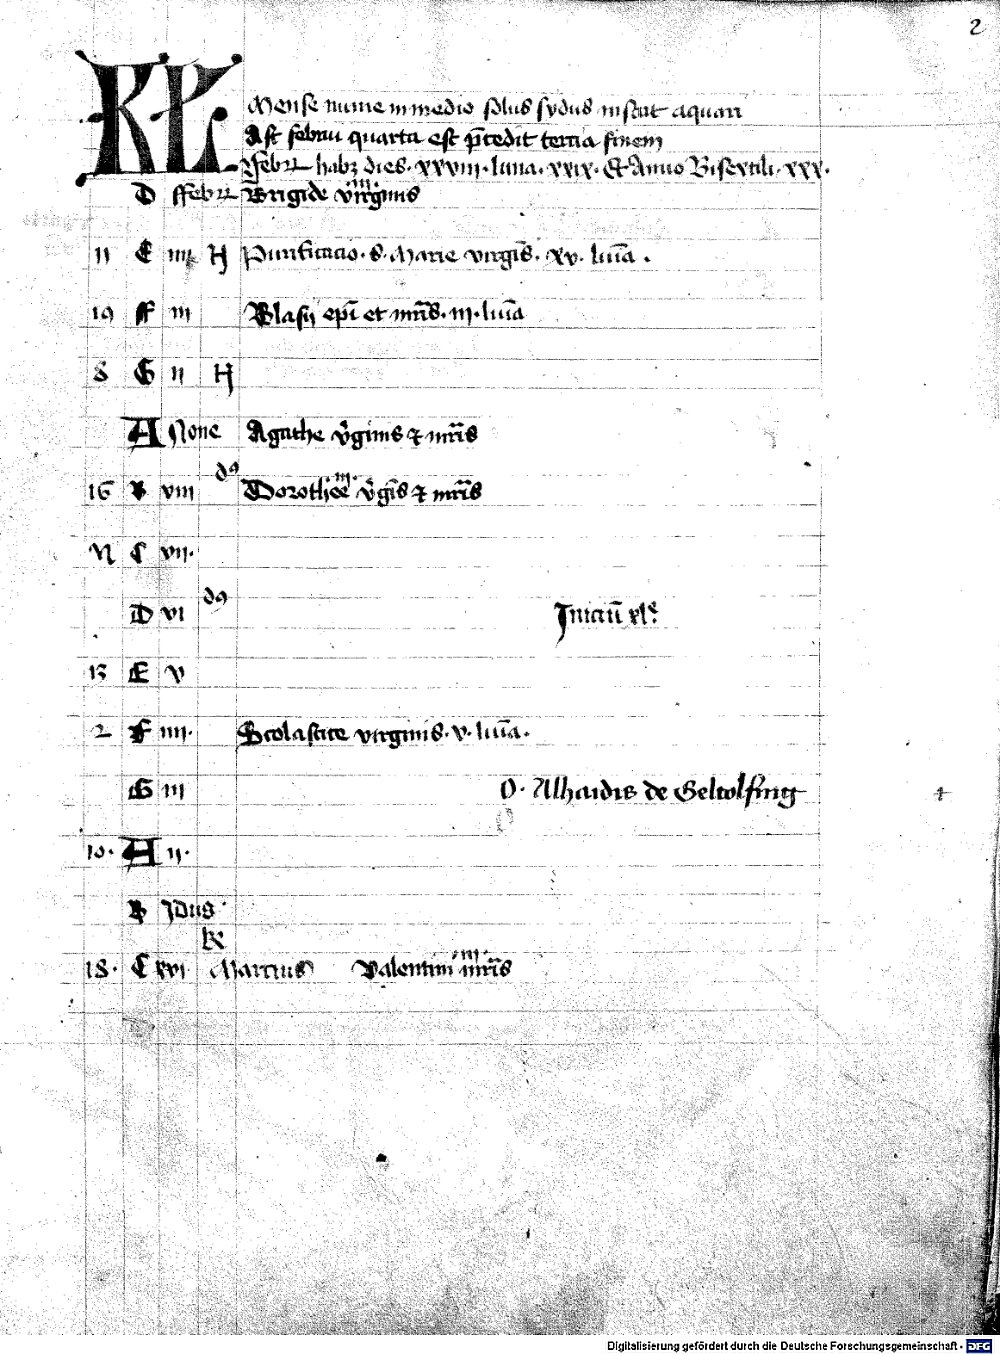 2
KL Mense nume in medio solidus sydus instat aquarii
Ast febru quarta est p̄cedit tercia finem
Febru habꝫ dies. xxviii. luna. xxix. Et Anno Bisextili. xxx.
D ffebru Brigide virginis
11 E iiii H Purificacio. s. Marie virgīs. xv. lūa.
19 ff iii Blasij epī et mr̄is. iii. lūa
8 G ii H
A None Agathe v̄ginis ⁊ mr̄is
16 B viii d9 Dorothee v̄gīs ⁊ mr̄is
N C vii.
D vi d9 Iniciū xlᵉ.
13 E v
2 F iiii. Scolastice virginis. v. lūa.
G iii O. Alhaidis de Geltolfing
10. A ii.
B Idus
18. C xvi kł Marcius Valentini mr̄is
Digitalisierung gefördert durch die Deutsche Forschungsgemeinschaft - DFG